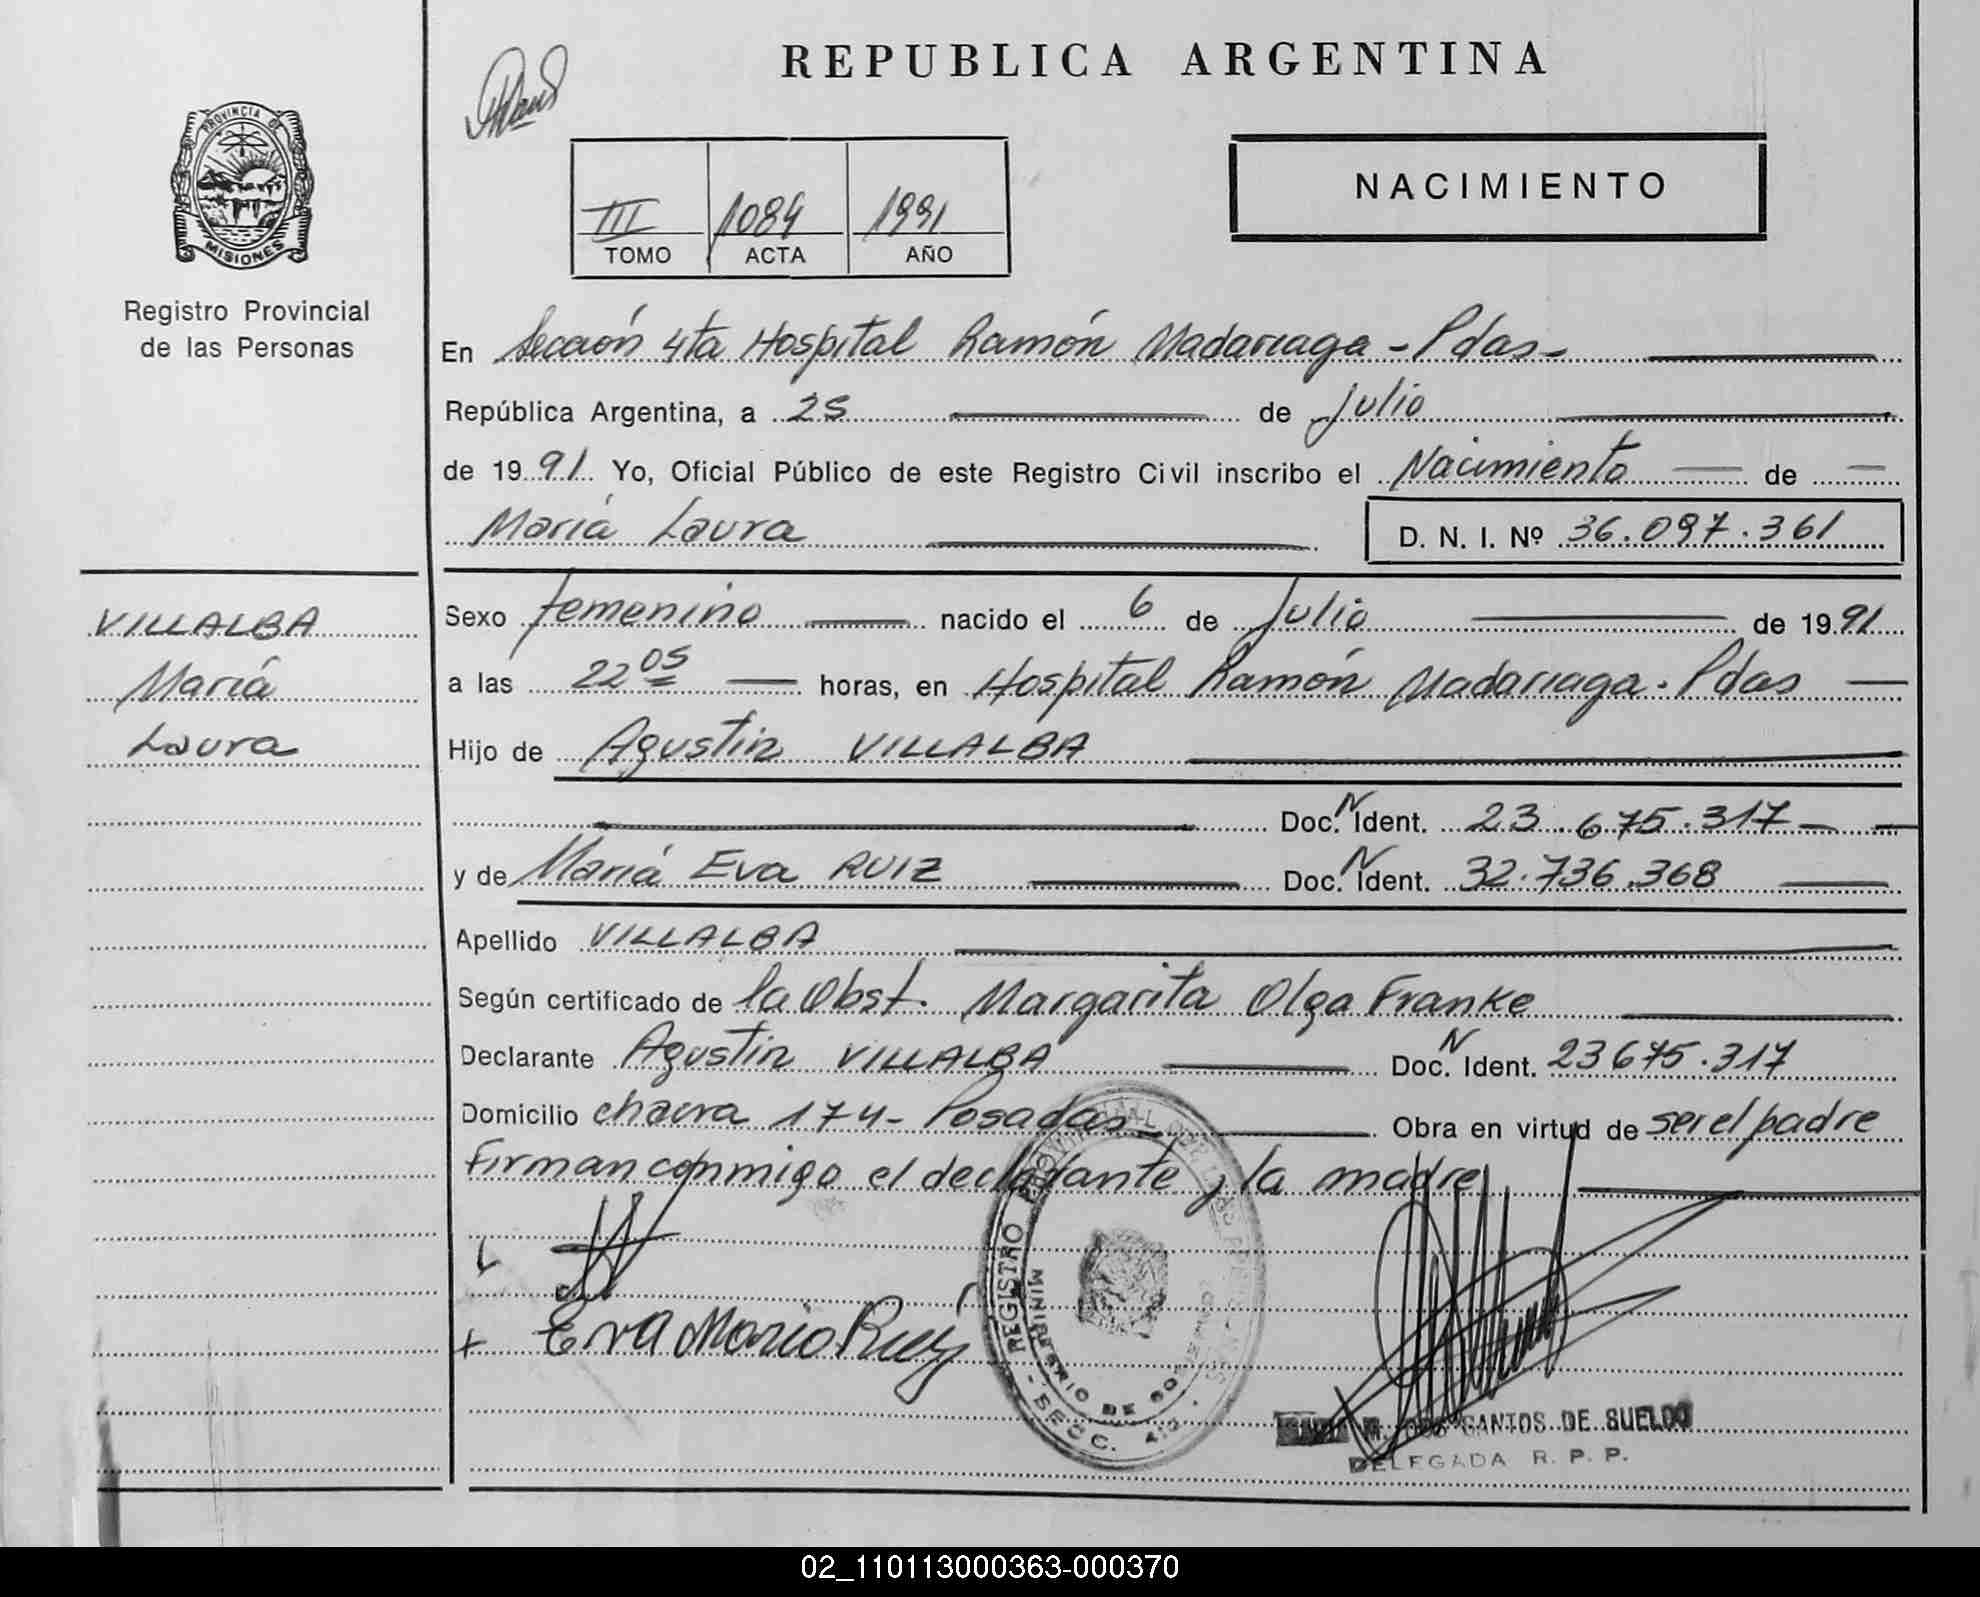 REPUBLICA ARGENTINA
PROVINCIA DE
MISIONES
Registro Provincial
de las Personas
III 1084 1991
TOMO ACTA AÑO
NACIMIENTO
En Sección 4ta Hospital Ramón Madariaga - Pdas -
República Argentina, a 25 de Julio
de 1991 Yo, Oficial Público de este Registro Civil inscribo el Nacimiento de
María Laura D. N. I. Nº 36.097.361
VILLALBA
María
Laura
Sexo femenino nacido el 6 de Julio de 1991
a las 22 05 horas, en Hospital Ramón Madariaga. Pdas
Hijo de Agustin VILLALBA
Doc. N Ident. 23.675.317
y de María Eva RUIZ Doc. N Ident. 32.736.368
Apellido VILLALBA
Según certificado de la Obst. Margarita Olga Franke
Declarante Agustin VILLALBA Doc. N Ident. 23675.317
Domicilio chacra 174 - Posadas Obra en virtud de ser el padre
Firman conmigo el declarante y la madre
Eva Maria Ruiz
REGISTRO PROVINCIAL DE LAS PERSONAS
MINISTERIO DE GOBIERNO
SECC. 4ta.
M. DOS SANTOS DE SUELDO
DELEGADA R. P. P.
02_110113000363-000370